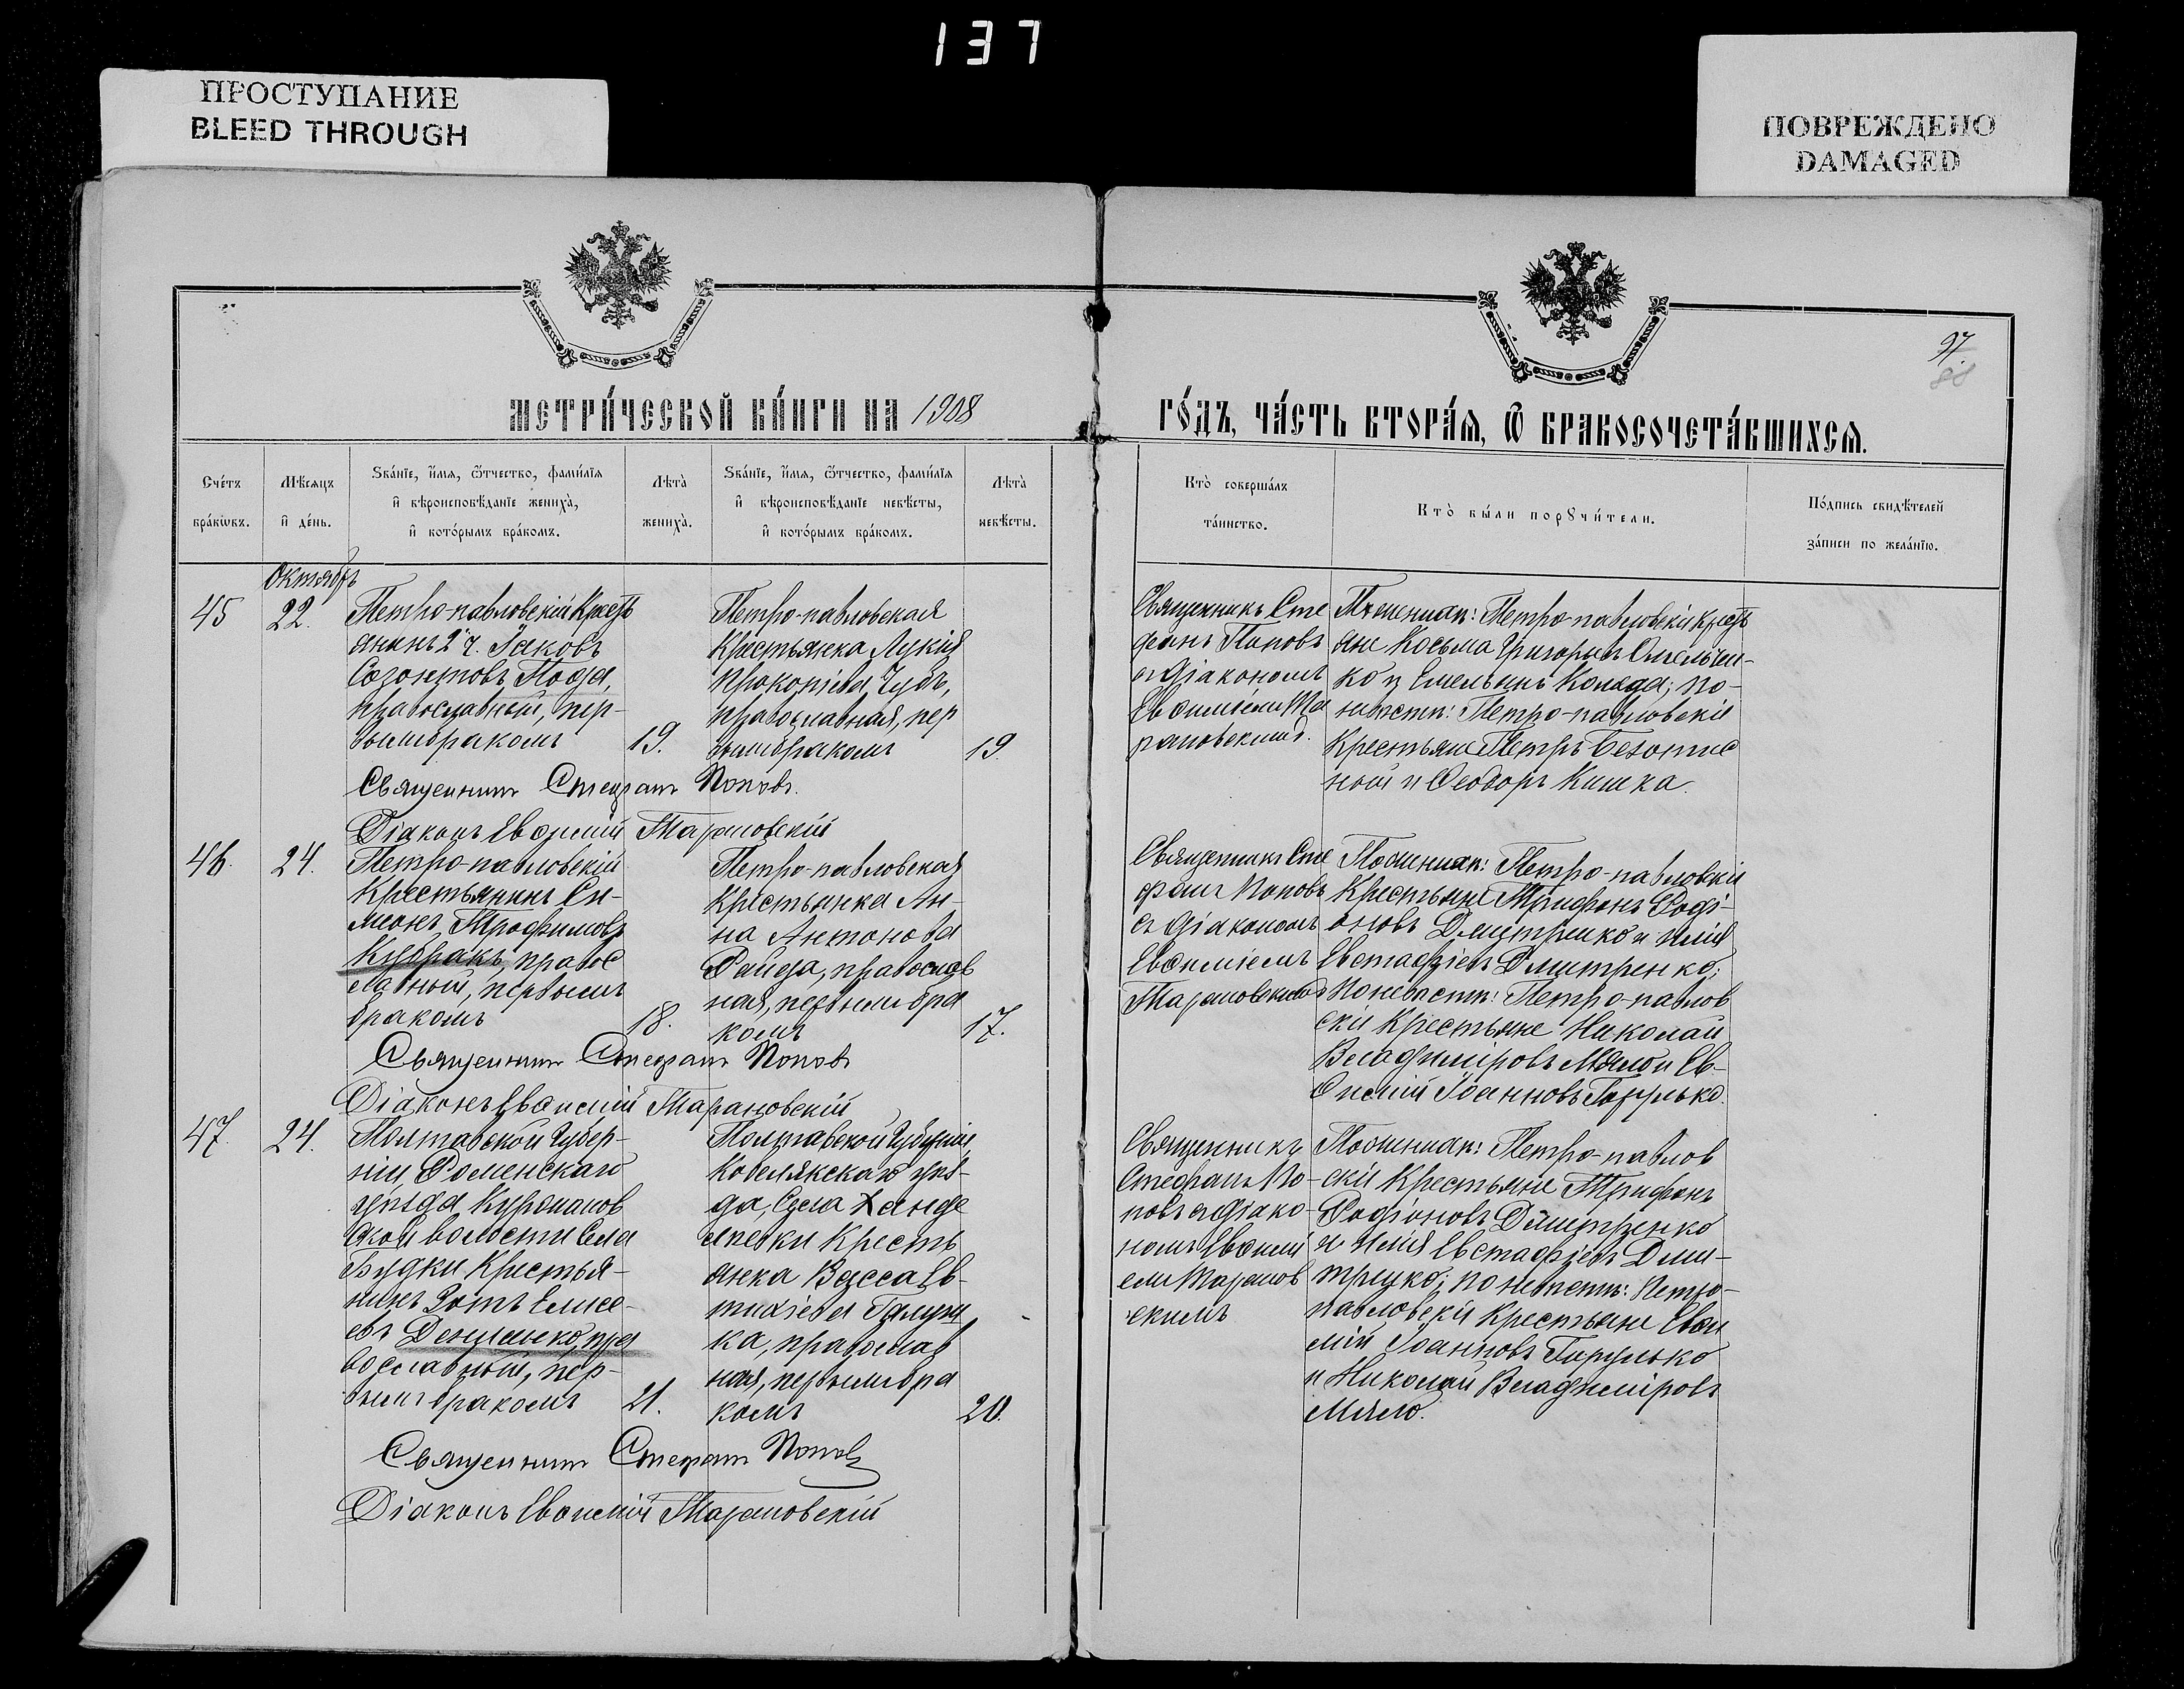 137
ПРОСТУПАНИЕ
BLEED THROUGH
ПОВРЕЖДЕНО
DAMAGED
97
88
МЕТРИ́ЧЕСКОЙ КНИ́ГИ НА 1908
ГО́ДЪ, ЧА́СТЬ ВТОРА́Ѧ, Ѿ БРАКОСОЧЕТА́ВШИХСѦ.
Сче́тъ
бра́кѡвъ.
Мѣ́сѧцъ
и҆ де́нь.
Зва́нїе, и҆́мѧ, ѻ҆́тчество, фами́лїѧ
и҆ вѣроисповѣ́данїе жениха̀,
и҆ кото́рымъ бра́комъ.
Лѣта̀
жениха̀.
Зва́нїе, и҆́мѧ, ѻ҆́тчество, фами́лїѧ
и҆ вѣроисповѣ́данїе невѣ́сты,
и҆ кото́рымъ бра́комъ.
Лѣта̀
невѣ́сты.
Кто̀ соверша́лъ
та́инство.
Кто̀ бы́ли порꙋчи́тели.
По́дпись свидѣ́телей
за́писи по жела́нїю.
Октябрь
45
22.
Петро-павловскій Кресть
янинъ Іаковъ
Созонтовъ
православный, пер-
вымъ бракомъ
19.
Петро-павловская
Крестьянка Лукія
Прокопіева Чубъ,
православная, пер
вымъ бракомъ
19
Священникъ Сте
фанъ Поповъ
съ діакономъ
Евѳиміемъ Та
рановскимъ.
По женихѣ: Петро-павловскіе кресть
яне Косьма Григорьевъ Омельчен-
ко и Емельянъ Коляда; по-
невѣстѣ: Петро-павловскіе
Крестьяне Петръ
ной и Ѳеодоръ Кишка.
Священникъ Стефанъ Поповъ.
Діаконъ Евѳимій Тарановскій
46.
24.
Петро-павловскій
Крестьянинъ Си-
меонъ Трофимовъ
Кубракъ, правос
лавный, первымъ
бракомъ
18.
Петро-павловская
Крестьянка Ан-
на Антонова
православ
ная, первымъ бра
комъ
17.
Священникъ Сте
фанъ Поповъ
съ діакономъ
Евѳиміемъ
Тарановскимъ
По женихѣ: Петро-павловскіе
Крестьяне Трифонъ Роді-
оновъ Дмитренко и Илія
Евстафіевъ Дмитренко;
По невѣстѣ: Петро-павлов
скіе Крестьяне Николай
Владиміровъ Мяло и Ев-
ѳимій Іоанновъ Гирулько.
Священникъ Стефанъ Поповъ
Діаконъ Евѳимій Тарановскій
47.
24.
Полтавской Губер-
ніи, Роменскаго
уѣзда
ской волости Села
Будки Крестья-
нинъ Зотъ Елисе-
евъ Денисенко, пра
вославный, пер-
вымъ бракомъ
21.
Полтавской Губерніи,
Кобелякскаго уѣз-
да, Села Ханде
лѣевки Кресть
янка Васса Ев-
тихіева
ка, православ
ная, первымъ бра
комъ
20.
Священникъ
Стефанъ По-
повъ съ діако-
номъ Евѳимі
емъ Таранов
скимъ
По женихѣ: Петро-павлов
скіе Крестьяне Трифонъ
Родіоновъ Дмитренко
и Илія Евстафіевъ Дми-
тренко; по невѣстѣ: Петро-
павловскіе Крестьяне Евѳи
мій Іоанновъ Гирулько
и Николай Владиміровъ
Мяло.
Священникъ Стефанъ Поповъ
Діаконъ Евѳимій Тарановскій